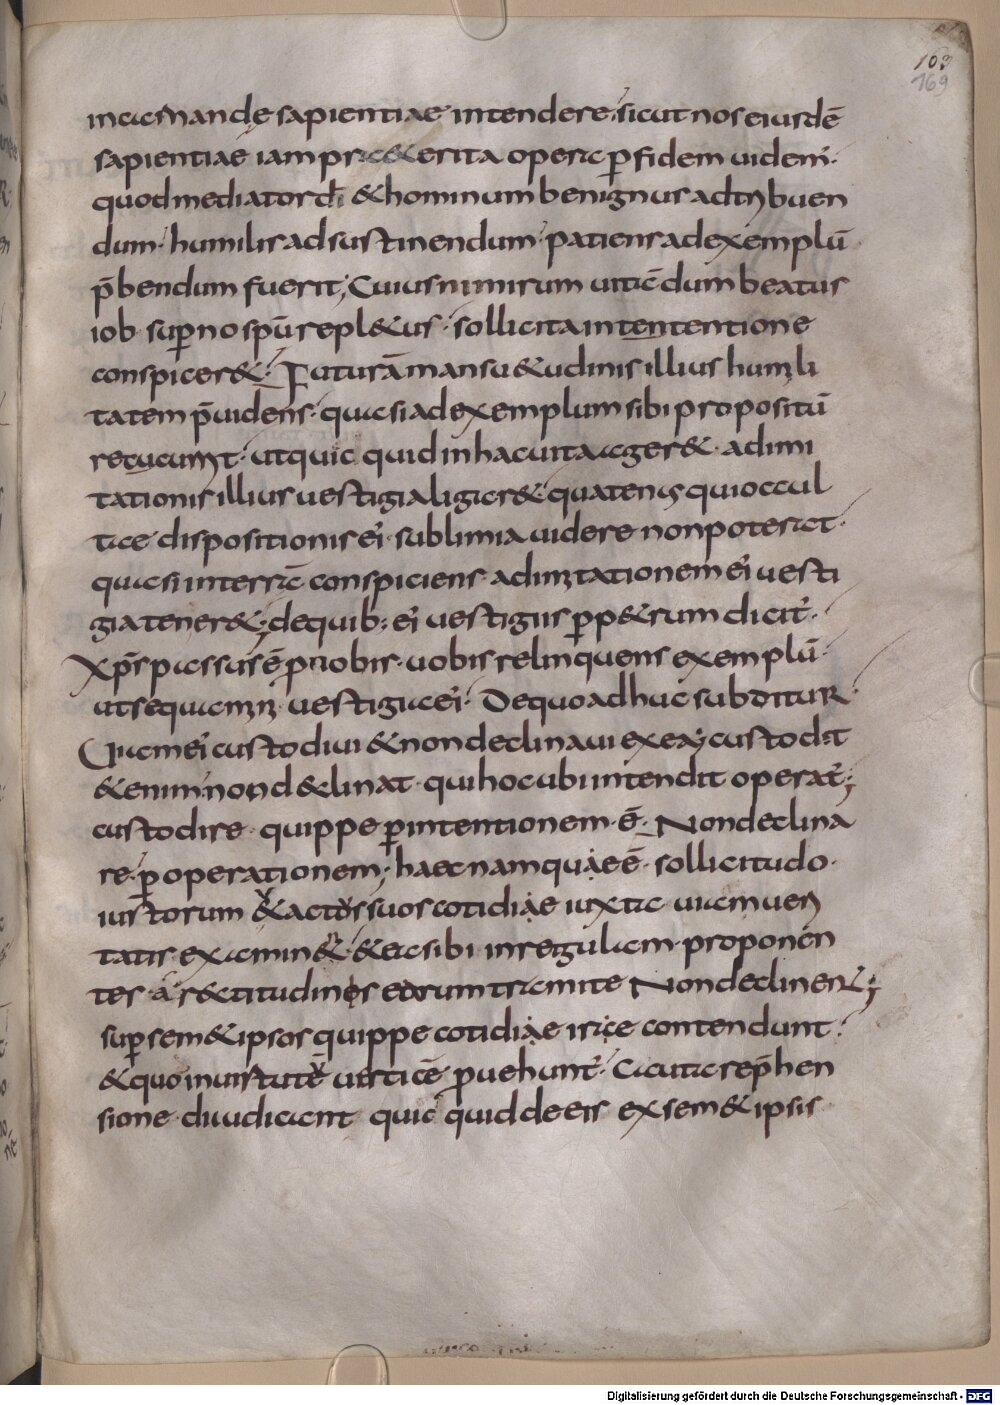 103
169
incarnandę sapientiae intendere sicut nos eiusdē
sapientiae iam pra&erita opera p̱ fidem uidem̅·
quod mediator dī &hominum benignus ad tribuen
dum· humilis ad sustinendum· patiens ad exemplū
p̄bendum fuerit; Cuius nimirum uitā dum beatus
iob· sup̱no sp̄u repl&us· sollicita intententione
conspicer&· Futurā mansu&udinis illius humili
tatem p̄uidens· quasi ad exemplum sibi propositū
recucurrit· ut quic quid in hac uita ager&· ad imi
tationis illius uestigia ligar&· quatenus qui occul
tae dispositionis ei᾽ sublimia uidere non poterat·
quasi in terrā conspiciens ad imitationem ei᾽ uesti
gia tener&· de quib; ei᾽ uestigiis p̱ p&rum dicit᾽·
Xp̄s passus ē p nobis· uobis relinquens exemplū·
ut sequamini uestigia ei᾽· De quo adhuc subditur·
Uiam ei᾽ custodiui &non declinaui ex ea; custodit
&enim non d&linat· qui hoc ubi intendit operat᾽;
custodire quippe p̱ intentionem·ē· Non declina
re· p̱ operationem; haec namquae ē· sollicitudo·
iustorum & actus suos cotidiae iuxta uiam ueri
tatis examin&· &easibi in regulam proponen
tes a r&ctitudinis eorum tramite Non declinent;
sup̱ sem&ipsos quippe cotidiae irae contendunt·
&quo in uirtutē uirticē prouehunt᾽· Cauta rep̄hen
sione diiudicant quic quid de eis ex sem&ipsis
Digitalisierung gefördert durch die Deutsche Forschungsgemeinschaft - DFG